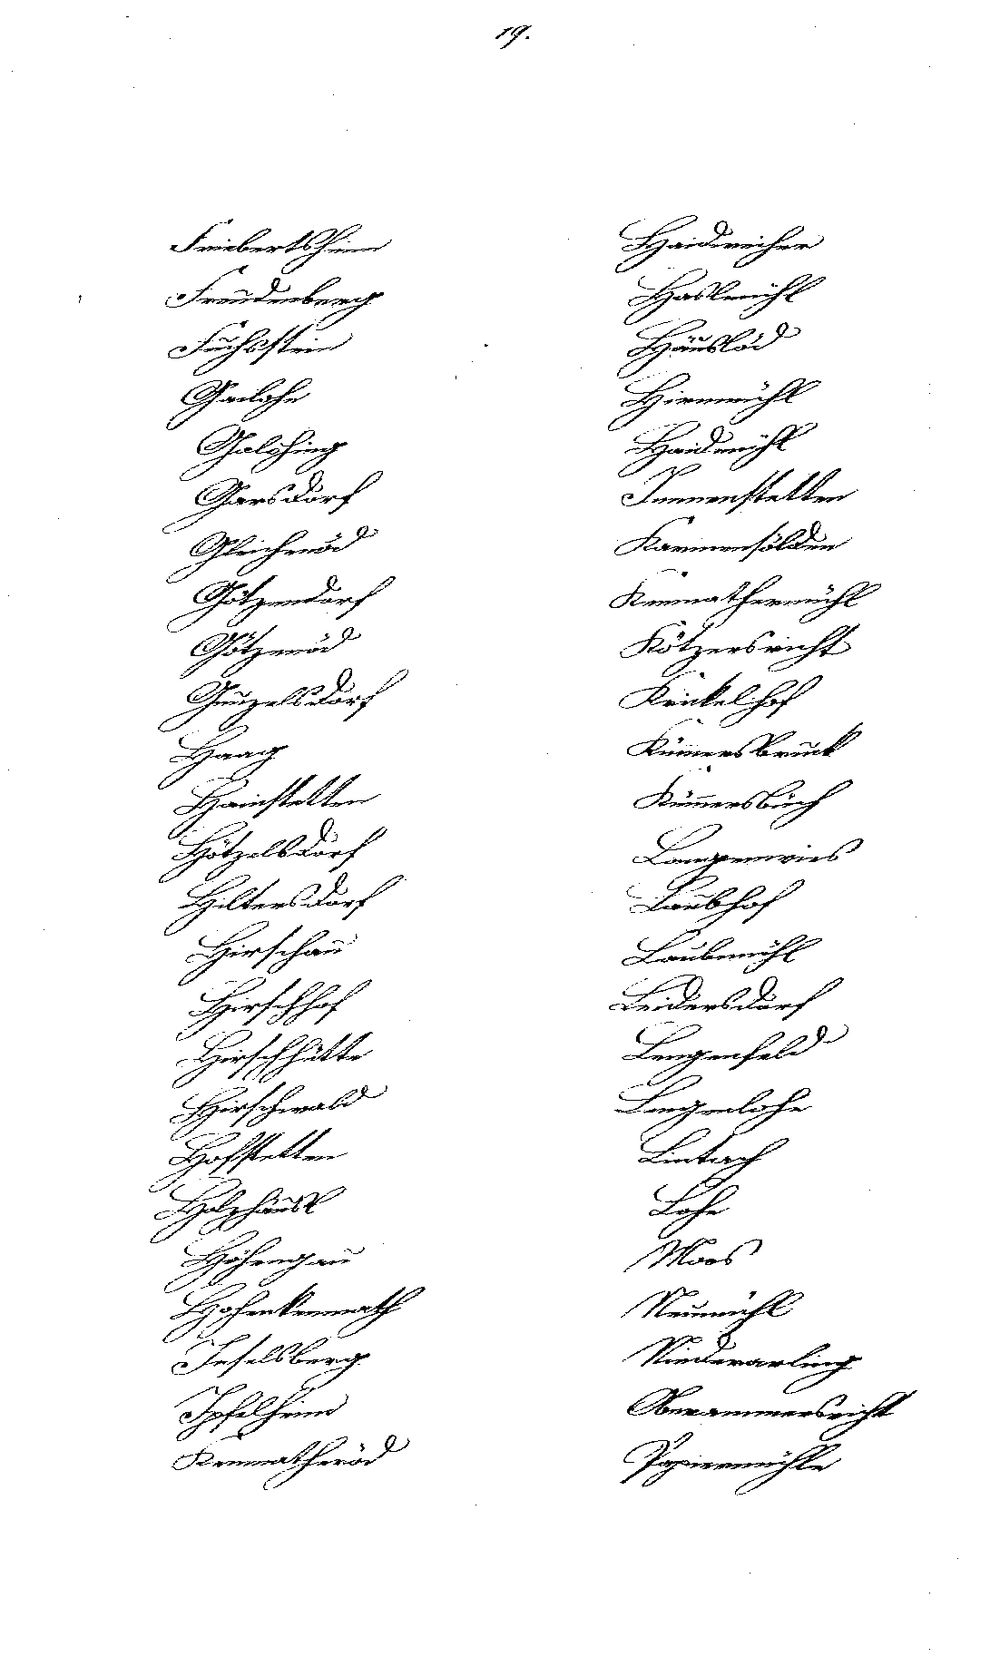 19.
Friebertsheim
Freudenberg
Fuchsstein
Gailohe
Galching
Garsdorf
Gleichenöd
Götzendorf
Götzenöd
Gunzelsdorf
Haag
Hainstetten
Hötzelsdorf
Hiltersdorf
Hirschau
Hirschhof
Hirschhütte
Hirschwald
Hofstetten
Holzhäusl
Höhengau
Hohenkemnath
Inselsberg
Ipfelheim
Kemnatheröd
Haidweiher
Haslmühl
Häuslöd
Hirnmühl
Haidmühl
Innenstetten
Karmensölden
Kemnathermühl
Kötzersricht
Krickelhof
Kümersbruck
Kümmersbuch
Langenwies
Laubhof
Laubmühl
Leidersdorf
Lengenfeld
Lengenlohe
Lintach
Lohe
Moos
Neumühl
Niederarling
Oberammersricht
Papiermühle